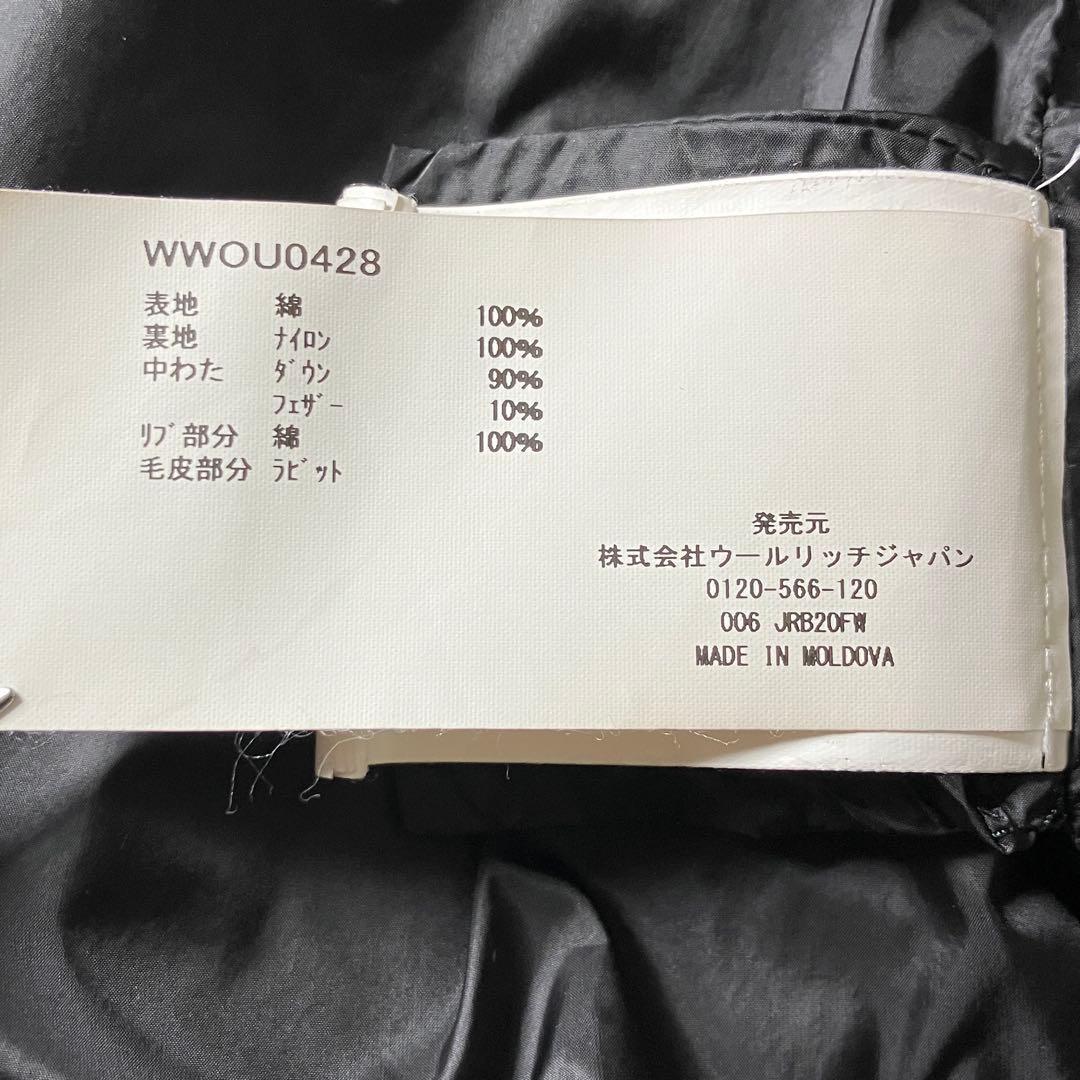 WWOU0428
表地 綿 100%
裏地 ﾅｲﾛﾝ 100%
中わた ﾀﾞｳﾝ 90%
ﾌｪｻﾞｰ 10%
ﾘﾌﾞ部分 綿 100%
毛皮部分 ﾗﾋﾞｯﾄ
発売元
株式会社ウールリッチジャパン
0120-566-120
006 JRB20FW
MADE IN MOLDOVA